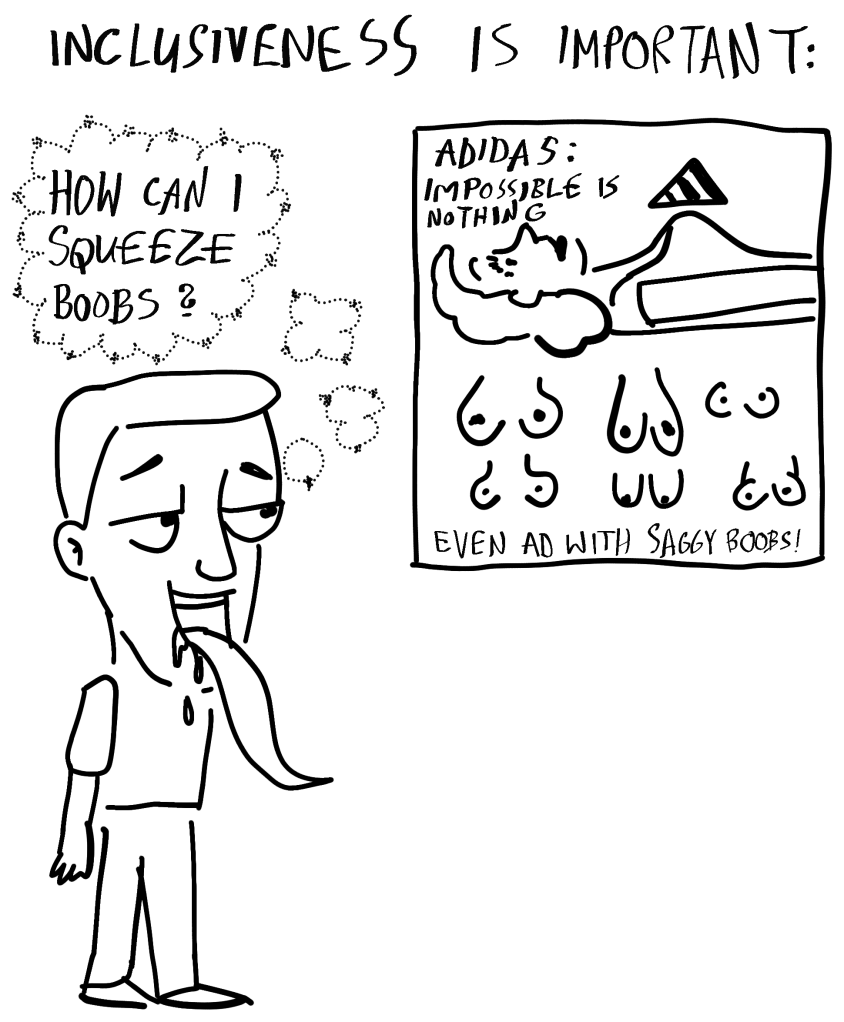 INCLUSIVENESS IS IMPORTANT:
HOW CAN I
SQUEEZE
BOOBS?
ADIDAS:
IMPOSSIBLE IS
NOTHING
EVEN AD WITH SAGGY BOOBS!